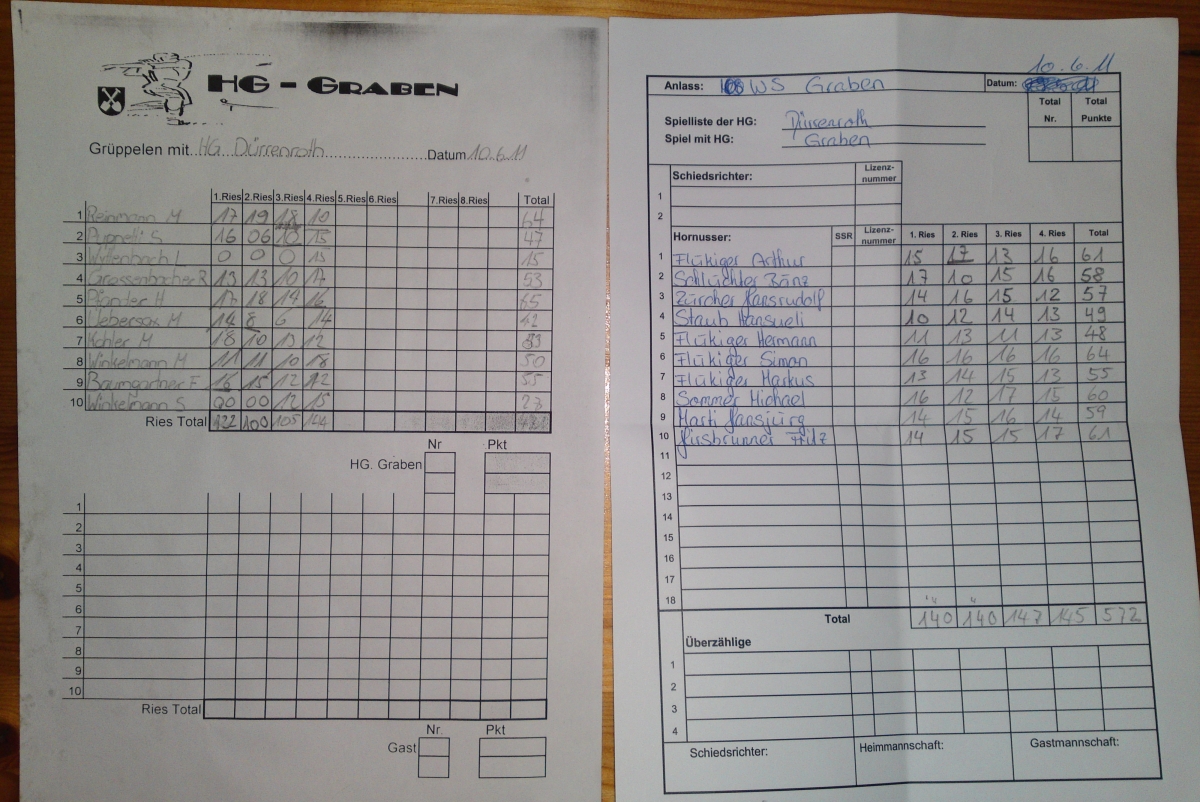 HG - GRABEN
Grüppelen mit HG Dürrenroth Datum 10.6.11
1.Ries 2.Ries 3.Ries 4.Ries 5.Ries 6.Ries 7.Ries 8.Ries Total
1 Reinmann M 17 19 18 10 64
2 S 16 06 10 15 47
3 Wittenbach L 0 0 0 15 15
4 Grossenbacher R 13 13 10 17 53
5 Pfander H 17 18 14 16 65
6 Uebersax M 14 8 6 14 42
7 Kohler M 18 10 13 12
8 Winkelmann M 11 11 10 18 50
9 Baumgartner F 16 15 12 12 55
10 Winkelmann S 00 00 12 15 27
Ries Total 122 100 105
Nr Pkt
HG. Graben
1
2
3
4
5
6
7
8
9
10
Ries Total
Nr. Pkt
Gast
Anlass: WS Graben Datum: 10.6.11
Total Nr. Total Punkte
Spielliste der HG: Dürrenroth
Spiel mit HG: Graben
Schiedsrichter: Lizenz-nummer
1
2
Hornusser: SSR Lizenz-nummer 1. Ries 2. Ries 3. Ries 4. Ries Total
1 Flükiger Arthur 15 17 13 16 61
2 Schlüchter Bänz 17 10 15 16 58
3 Zürcher Hansrudolf 14 16 15 12 57
4 Staub Hansueli 10 12 14 13 49
5 Flükiger Hermann 11 13 11 13 48
6 Flükiger Simon 16 16 16 16 64
7 Flükiger Markus 13 14 15 13 55
8 Sommer Michael 16 12 17 15 60
9 Marti Hansjürg 14 15 16 14 59
10 Hirsbrunner Fritz 14 15 15 17 61
11
12
13
14
15
16
17
18
Total 140 140 147 145 572
Überzählige
1
2
3
4
Schiedsrichter: Heimmannschaft: Gastmannschaft: